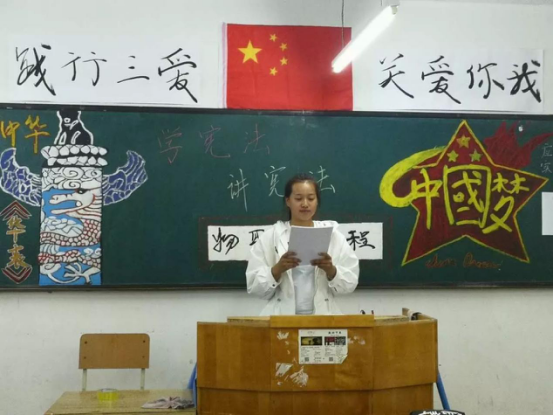 践行三爱
关爱你我
中华
学宪法
讲宪法
物 程
中國梦